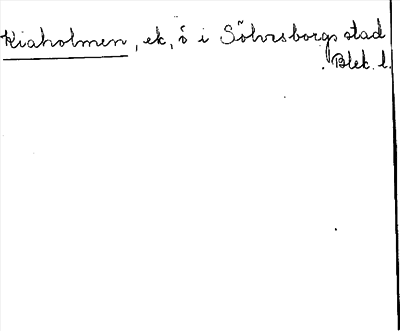 Kiaholmen, ek, ö i Sölvesborgs stad
Blek. l.